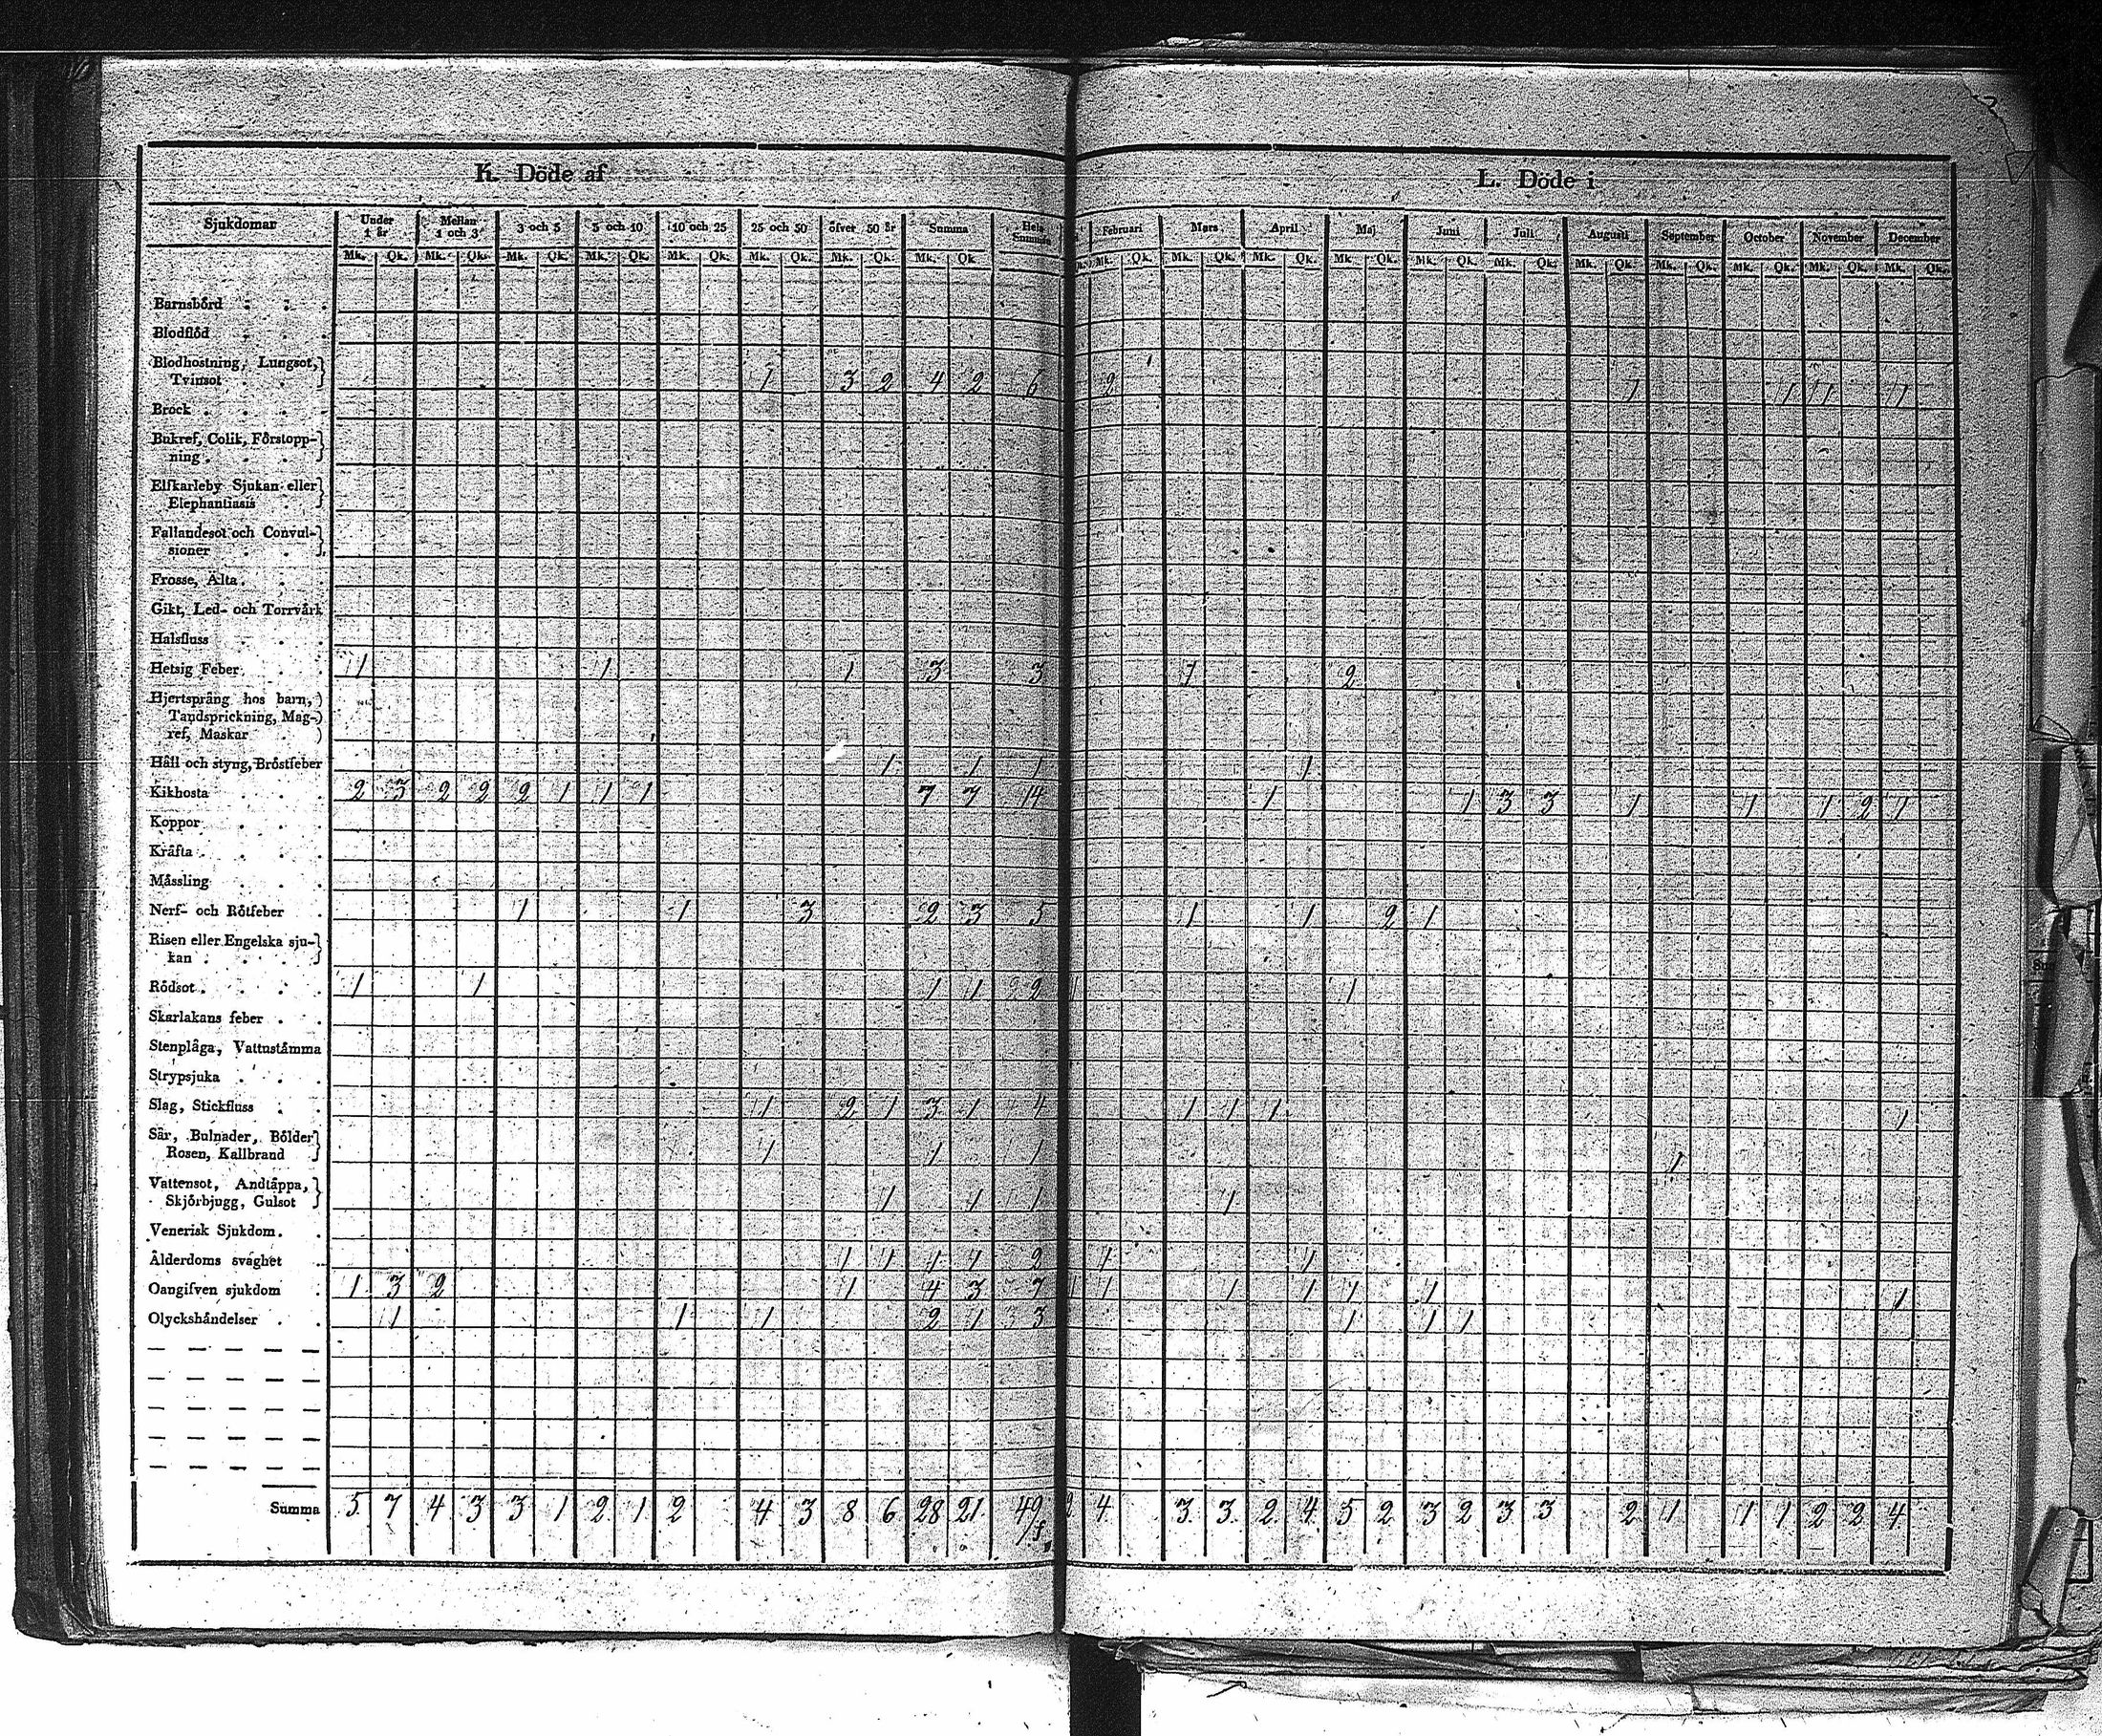 K. Döde af
L. Döde i
Sjukdomar Under 1 år Mellan 1 och 3 3 och 5 5 och 10 10 och 25 25 och 50 öfver 50 år Summa Hela Summan Februari Mars April Maj Juni Juli Augusti September October November December
Mk. Qk. Mk. Qk. Mk. Qk. Mk. Qk. Mk. Qk. Mk. Qk. Mk. Qk. Mk. Qk. Mk. Qk. Mk. Qk. Mk. Qk. Mk. Qk. Mk. Qk. Mk. Qk. Mk. Qk. Mk. Qk. Mk. Qk. Mk. Qk. Mk. Qk.
Barnsbörd
Blodflöd
Blodhostning, Lungsot,
Tvinsot 1 3 2 4 2 6 2 1 1 1 1
Brock
Bukref, Colik, Förstopp-
ning
Elfkarleby Sjukan eller
Elephantiasis
Fallandesot och Convul-
sioner
Frosse, Älta
Gikt, Led- och Torrvärk
Halsfluss
Hetsig Feber 1 1 1 3 3 1 2
Hjertsprång hos barn,
Tandsprickning, Mag-
ref, Maskar
Håll och styng, Bröstfeber 1 1 1 1
Kikhosta 2 3 2 2 2 1 1 1 7 7 14 1 1 3 3 1 1 1 2 1
Koppor
Kräfta
Mässling
Nerf- och Rötfeber 1 1 3 2 3 5 1 1 2 1
Risen eller Engelska sju-
kan
Rödsot 1 1 1 1 2 1 1
Skarlakans feber
Stenplåga, Vattustämma
Strypsjuka
Slag, Stickfluss 1 2 1 3 1 4 1 1 1 1
Sår, Bulnader, Bölder
Rosen, Kallbrand 1 1 1 1
Vattensot, Andtäppa,
Skjörbjugg, Gulsot 1 1 1 1
Venerisk Sjukdom
Ålderdoms svaghet 1 1 1 1 2 1 1
Oangifven sjukdom 1 3 2 1 4 3 7 1 1 1 1 1 1 1
Olyckshändelser 1 1 1 2 1 3 1 1 1
Summa 5 7 4 3 3 1 2 1 2 4 3 8 6 28 21 49 2 4 3 3 2 4 5 2 3 2 3 3 2 1 1 1 2 2 4